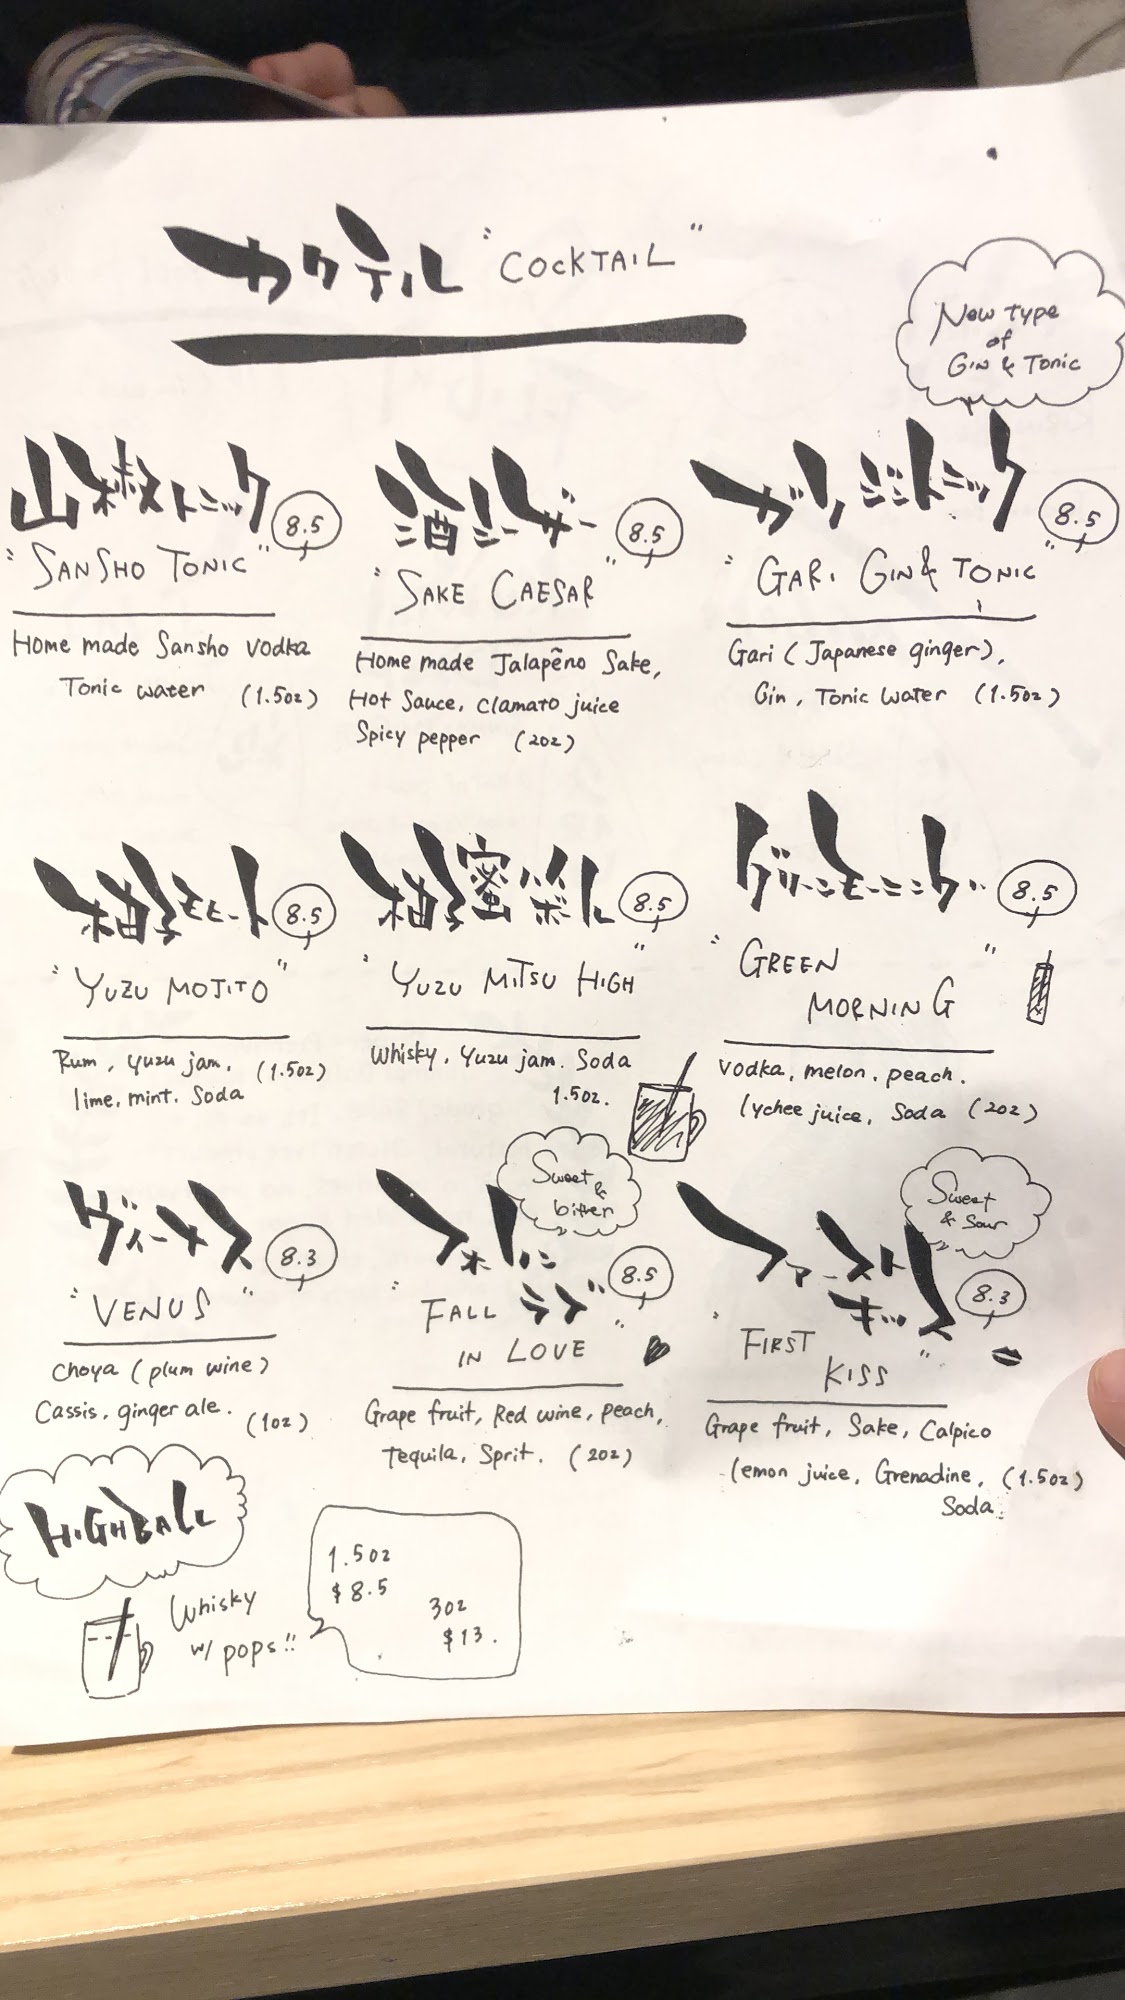 カクテル "COCKTAIL"
New type
of
Gin & Tonic
山椒トニック 8.5
"SANSHO TONIC"
Home made Sansho vodka
Tonic water (1.5oz)
酒シーザー 8.5
"SAKE CAESAR"
Home made Jalapeño Sake,
Hot Sauce, clamato juice
Spicy pepper (2oz)
ガリジントニック 8.5
"GARI GIN & TONIC"
Gari (Japanese ginger),
Gin, Tonic water (1.5oz)
柚子モヒート 8.5
"YUZU MOJITO"
Rum, yuzu jam, (1.5oz)
lime, mint. Soda
柚子蜜ハイボール 8.5
"YUZU MITSU HIGH"
Whisky, Yuzu jam. Soda
1.5oz.
グリーンモーニング 8.5
"GREEN
MORNING"
Vodka, melon, peach.
lychee juice, Soda (2oz)
ヴィーナス 8.3
"VENUS"
Choya (plum wine)
Cassis, ginger ale. (1oz)
Sweet
&
bitter
フォーリン
ラブ 8.5
"FALL
IN LOVE"
Grape fruit, Red wine, peach,
Tequila, Sprit. (2oz)
Sweet
& Sour
ファースト
キッス 8.3
"FIRST
KISS"
Grape fruit, Sake, Calpico
lemon juice, Grenadine, (1.5oz)
Soda
HIGHBALL
Whisky
w/ pops!!
1.5oz
$8.5
3oz
$13.